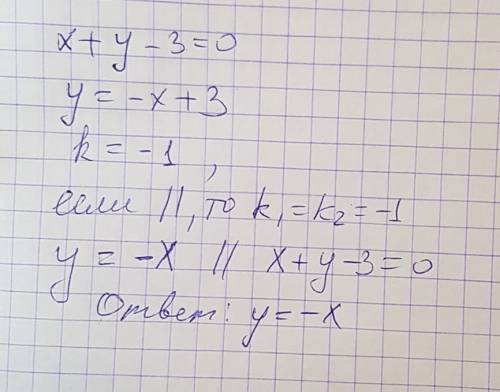 x + y - 3 = 0
y = -x + 3
k = -1 ,
если ||, то k₁ = k₂ = -1
y = -x || x + y - 3 = 0
Ответ: y = -x